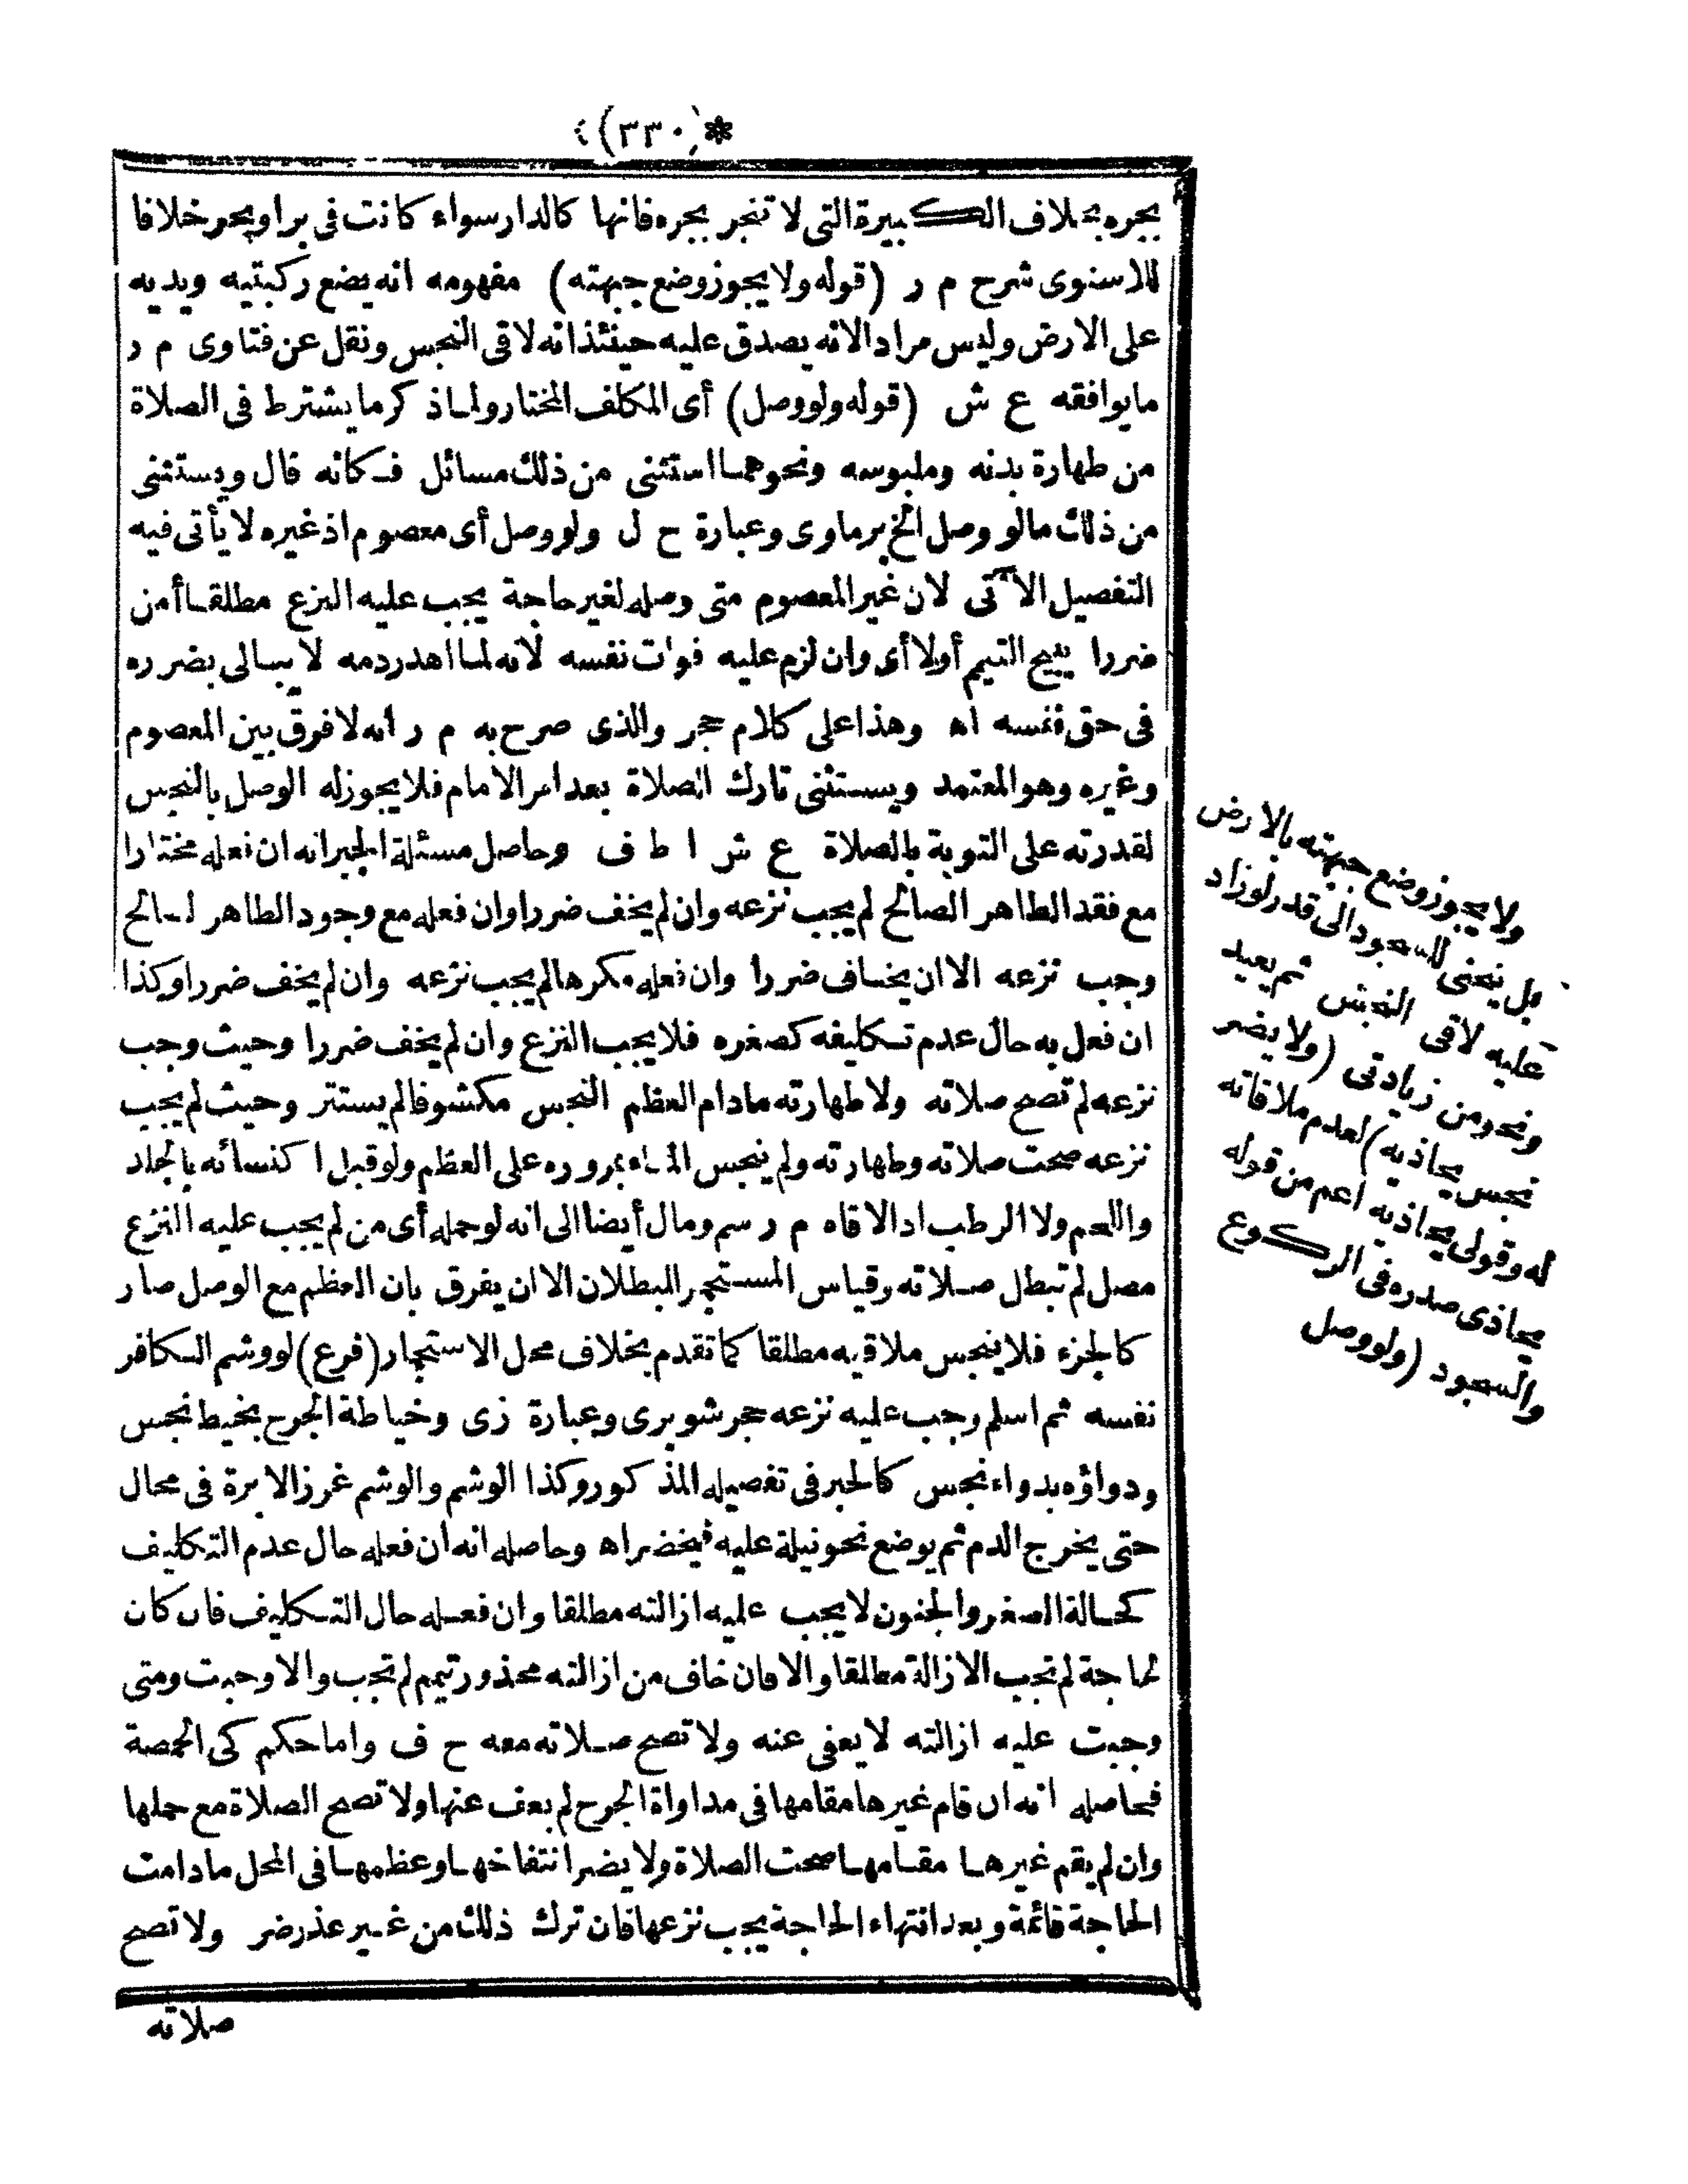 *(٣٣٠)*
بجره بخلاف الكبيرة التى لا تنجر بجره فانها كالدار سواء كانت فى بر او بحر خلافا
للاسنوى شرح م ر (قوله ولا يجوز وضع جبهته) مفهومه انه يضع ركبتيه ويديه
على الارض وليس مرادا لانه يصدق عليه حينئذ انه لاقى النجس ونقل عن فتاوى م ر
ما يوافقه ع ش (قوله ولو وصل) أى المكلف المختار ولما ذكر ما يشترط فى الصلاة
من طهارة بدنه وملبوسه ونحوهما استثنى من ذلك مسائل فكانه قال ويستثنى
من ذلك ما لو وصل الخ برماوى وعبارة ح ل ولو وصل أى معصوم اذ غيره لا يأتى فيه
التفصيل الآتى لان غير المعصوم متى وصله لغير حاجة يجب عليه النزع مطلقا أمن
ضررا يبيح التيمم أو لا أى وان لزم عليه فوات نفسه لانه لما اهدر دمه لا يبالى بضرره
فى حق نفسه اه وهذا على كلام حجر والذى صرح به م ر انه لا فرق بين المعصوم
وغيره وهو المعتمد ويستثنى تارك الصلاة بعد امر الامام فلا يجوز له الوصل بالنجس
لقدرته على التوبة بالصلاة ع ش ا ط ف وحاصل مسئلة الجبر انه ان فعله مختارا
مع فقد الطاهر الصالح لم يجب نزعه وان لم يخف ضررا وان فعله مع وجود الطاهر الصالح
وجب نزعه الا ان يخاف ضررا وان فعله مكرها لم يجب نزعه وان لم يخف ضررا وكذا
ان فعل به حال عدم تكليفه كصغره فلا يجب النزع وان لم يخف ضررا وحيث وجب
نزعه لم تصح صلاته ولا طهارته مادام العظم النجس مكشوفا لم يستتر وحيث لم يجب
نزعه صحت صلاته وطهارته ولم ينجس الماء بمروره على العظم ولو قبل اكتسائه بالجلد
واللحم ولا الرطب اذا لاقاه م ر سم ومال أيضا الى انه لو حمله أى من لم يجب عليه النزع
مصل لم تبطل صلاته وقياس المستجمر البطلان الا ان يفرق بان العظم مع الوصل صار
كالجزء فلا ينجس ملاقيه مطلقا كما تقدم بخلاف محل الاستجمار (فرع) لو وشم الكافر
نفسه ثم اسلم وجب عليه نزعه حجر شوبرى وعبارة زى وخياطة الجرح بخيط نجس
ودواؤه بدواء نجس كالجبر فى تفصيله المذكور وكذا الوشم والوشم غرز الابرة فى محال
حتى يخرج الدم ثم يوضع نحو نيلة عليه فيخضر اه وحاصله انه ان فعله حال عدم التكليف
كحالة الصغر والجنون لا يجب عليه ازالته مطلقا وان فعله حال التكليف فان كان
لحاجة لم تجب الازالة مطلقا والا فان خاف من ازالته محذور تيمم لم تجب والا وجبت ومتى
وجبت عليه ازالته لا يعفى عنه ولا تصح صلاته معه ح ف واما حكم كى الحمصة
فحاصله انه ان قام غيرها مقامها فى مداواة الجرح لم يعف عنها ولا تصح الصلاة مع حملها
وان لم يقم غيرها مقامها صحت الصلاة ولا يضر انتفاخها وعظمها فى المحل مادامت
الحاجة قائمة وبعد انتهاء الحاجة يجب نزعها فان ترك ذلك من غير عذر ضر ولا تصح
صلاته
ولا يجوز وضع جبهته بالارض
بل ينحنى للسجود الى قدر لو زاد
عليه لاقى النجس ثم يعيد
ونحو من زيادتى (ولا يضر
نجس يحاذيه) لعدم ملاقاته
له وقولى يحاذيه اعم من قوله
يحاذى صدره فى الركوع
والسجود (ولو وصل